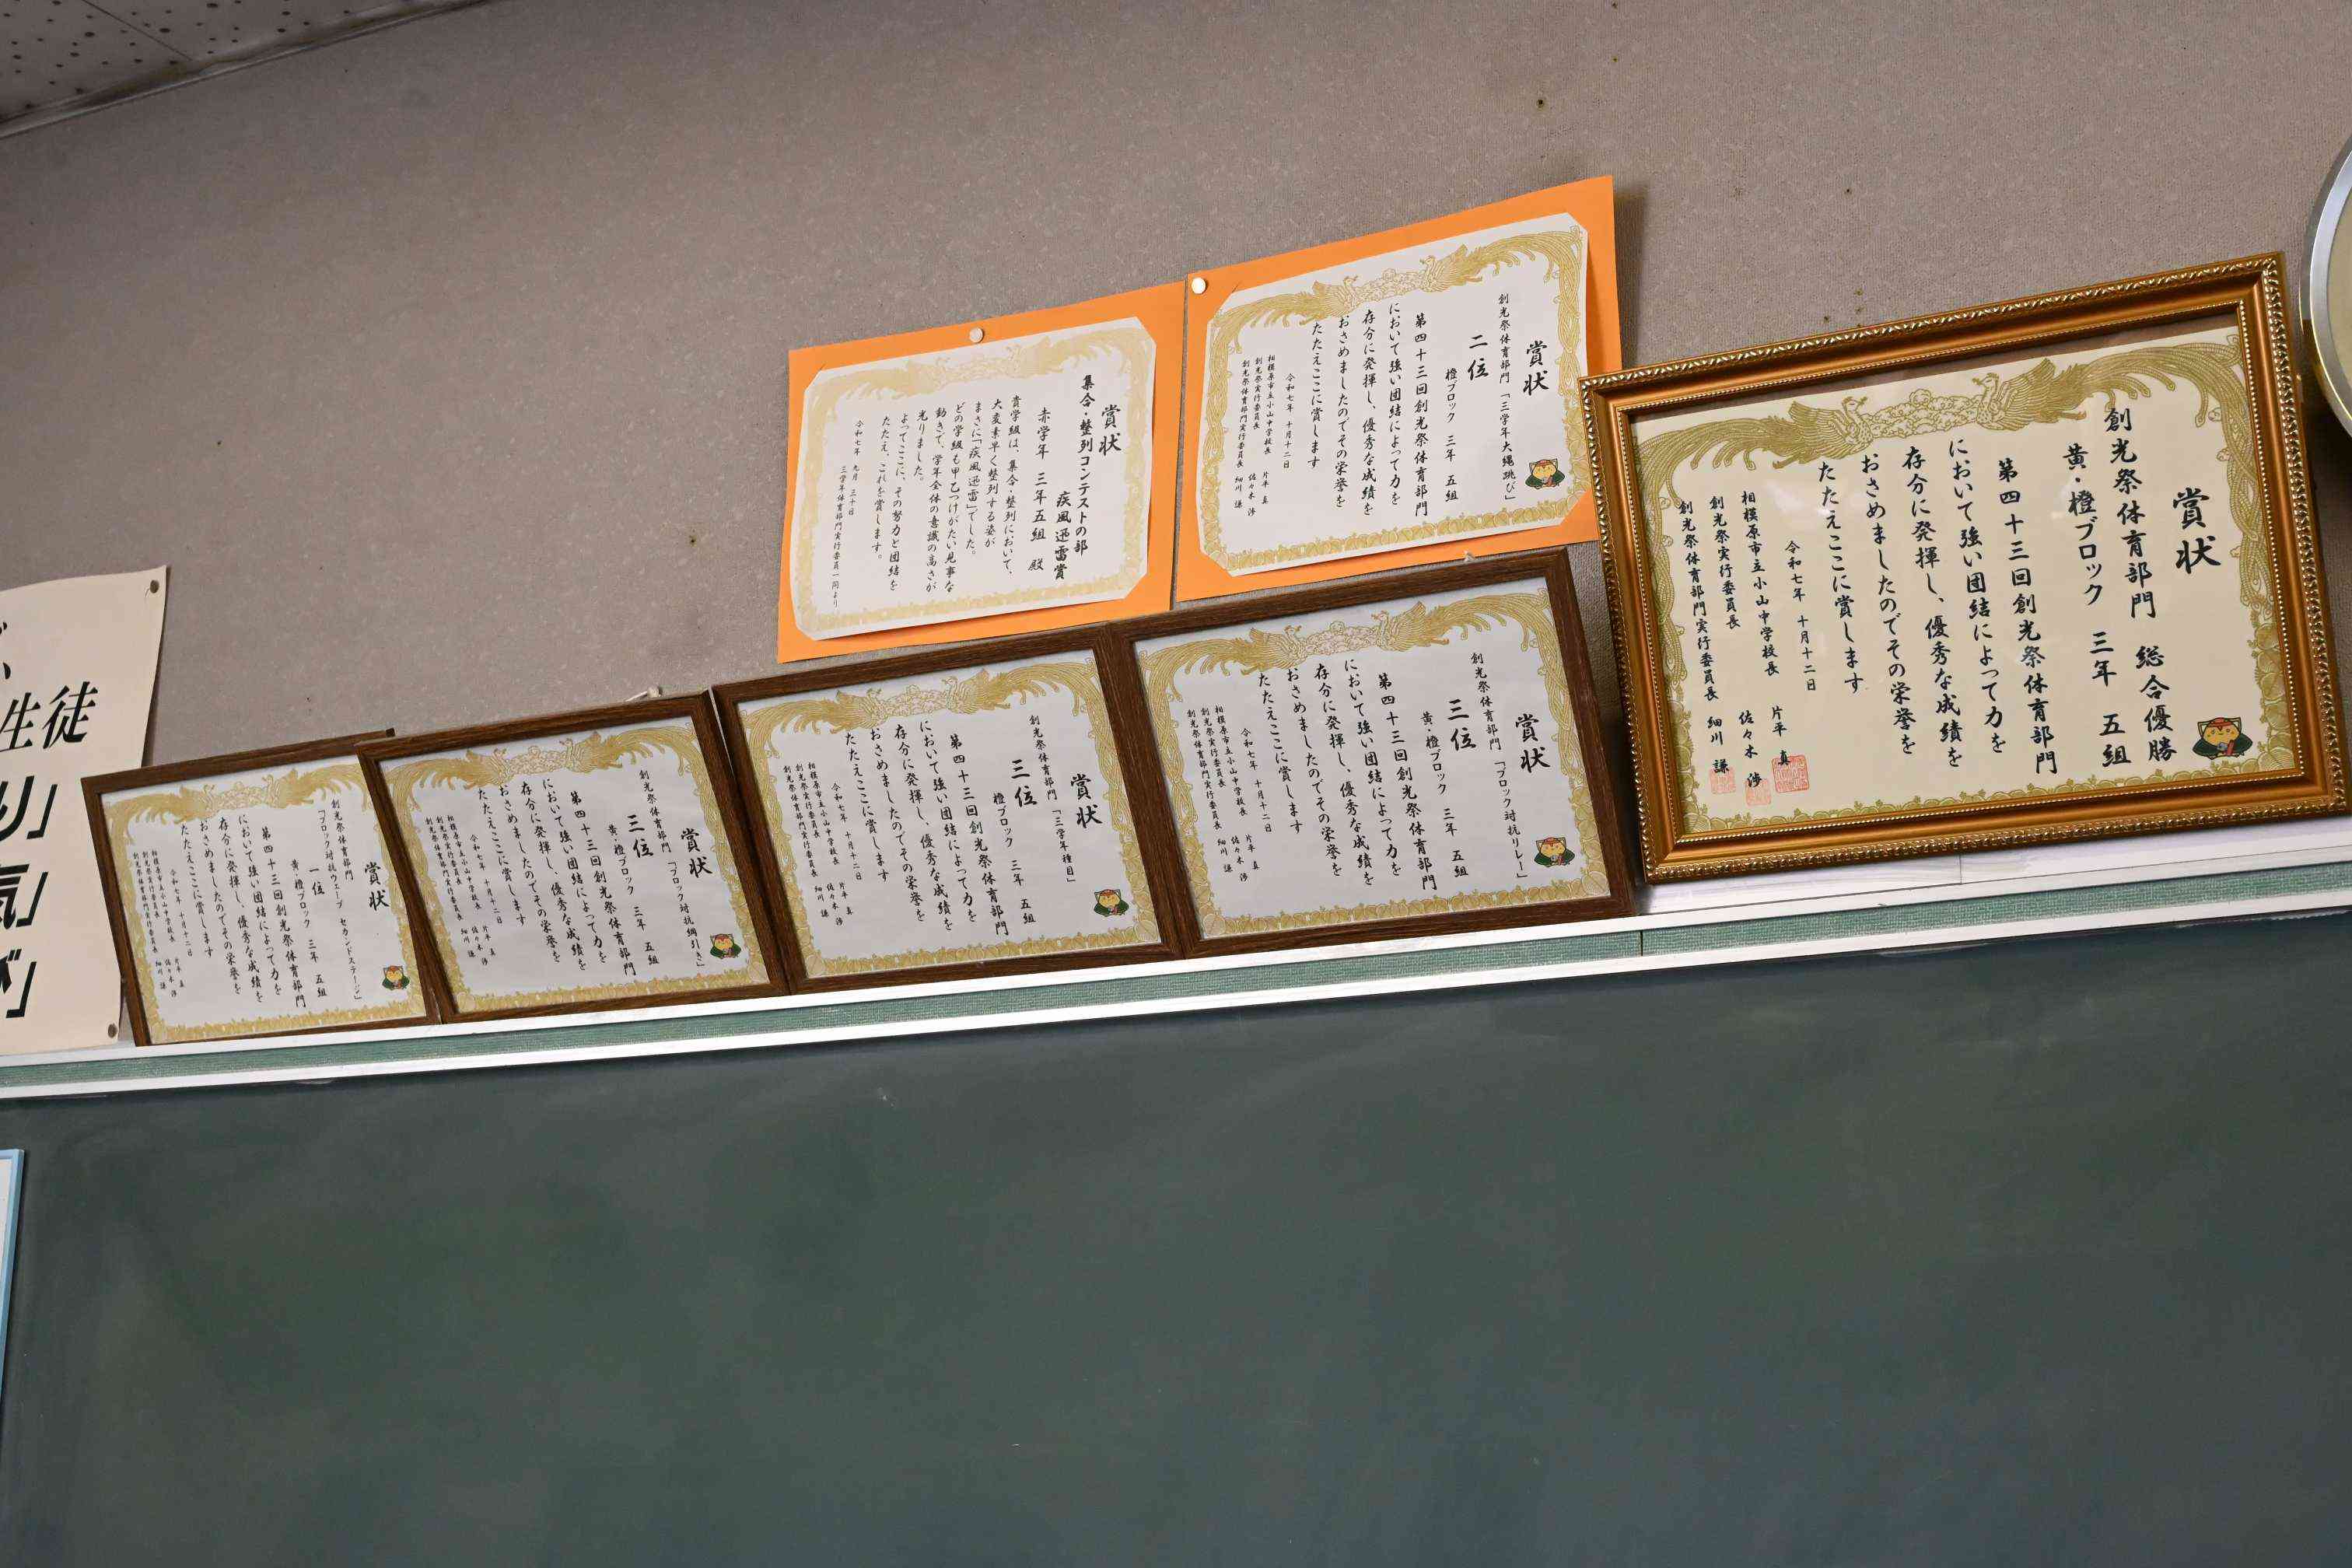 賞状
創光祭体育部門　総合優勝
黄・橙ブロック　三年　五組
第四十三回創光祭体育部門
において強い団結によって力を
存分に発揮し、優秀な成績を
おさめましたのでその栄誉を
たたえここに賞します
令和七年　十月十二日
相模原市立小山中学校長　片平　真
創光祭実行委員長　佐々木　渉
創光祭体育部門実行委員長　細川　謙
賞状
創光祭体育部門　「三学年大縄跳び」
二位　橙ブロック　三年　五組
第四十三回創光祭体育部門
において強い団結によって力を
存分に発揮し、優秀な成績を
おさめましたのでその栄誉を
たたえここに賞します
令和七年　十月十二日
相模原市立小山中学校長　片平　真
創光祭実行委員長　佐々木　渉
創光祭体育部門実行委員長　細川　謙
賞状
集合・整列コンテストの部
疾風迅雷賞
赤学年　三年五組　殿
貴学級は、集合・整列において、
大変素早く整列する姿が
まさに「疾風迅雷」でした。
どの学級も甲乙つけがたい見事な
動きで、学年全体の意識の高さが
光りました。
よってここに、その努力と団結を
たたえ、これを賞します。
令和七年　九月　三十日
三学年体育部門実行委員一同より
賞状
創光祭体育部門　「ブロック対抗リレー」
三位　黄・橙ブロック　三年　五組
第四十三回創光祭体育部門
において強い団結によって力を
存分に発揮し、優秀な成績を
おさめましたのでその栄誉を
たたえここに賞します
令和七年　十月十二日
相模原市立小山中学校長　片平　真
創光祭実行委員長　佐々木　渉
創光祭体育部門実行委員長　細川　謙
賞状
創光祭体育部門　「三学年種目」
三位　橙ブロック　三年　五組
第四十三回創光祭体育部門
において強い団結によって力を
存分に発揮し、優秀な成績を
おさめましたのでその栄誉を
たたえここに賞します
令和七年　十月十二日
相模原市立小山中学校長　片平　真
創光祭実行委員長　佐々木　渉
創光祭体育部門実行委員長　細川　謙
賞状
創光祭体育部門　「ブロック対抗綱引き」
三位　黄・橙ブロック　三年　五組
第四十三回創光祭体育部門
において強い団結によって力を
存分に発揮し、優秀な成績を
おさめましたのでその栄誉を
たたえここに賞します
令和七年　十月十二日
相模原市立小山中学校長　片平　真
創光祭実行委員長　佐々木　渉
創光祭体育部門実行委員長　細川　謙
賞状
創光祭体育部門
「ブロック対抗ウェーブ　セカンドステージ」
一位　黄・橙ブロック　三年　五組
第四十三回創光祭体育部門
において強い団結によって力を
存分に発揮し、優秀な成績を
おさめましたのでその栄誉を
たたえここに賞します
令和七年　十月十二日
相模原市立小山中学校長　片平　真
創光祭実行委員長　佐々木　渉
創光祭体育部門実行委員長　細川　謙
生徒
り」
気」